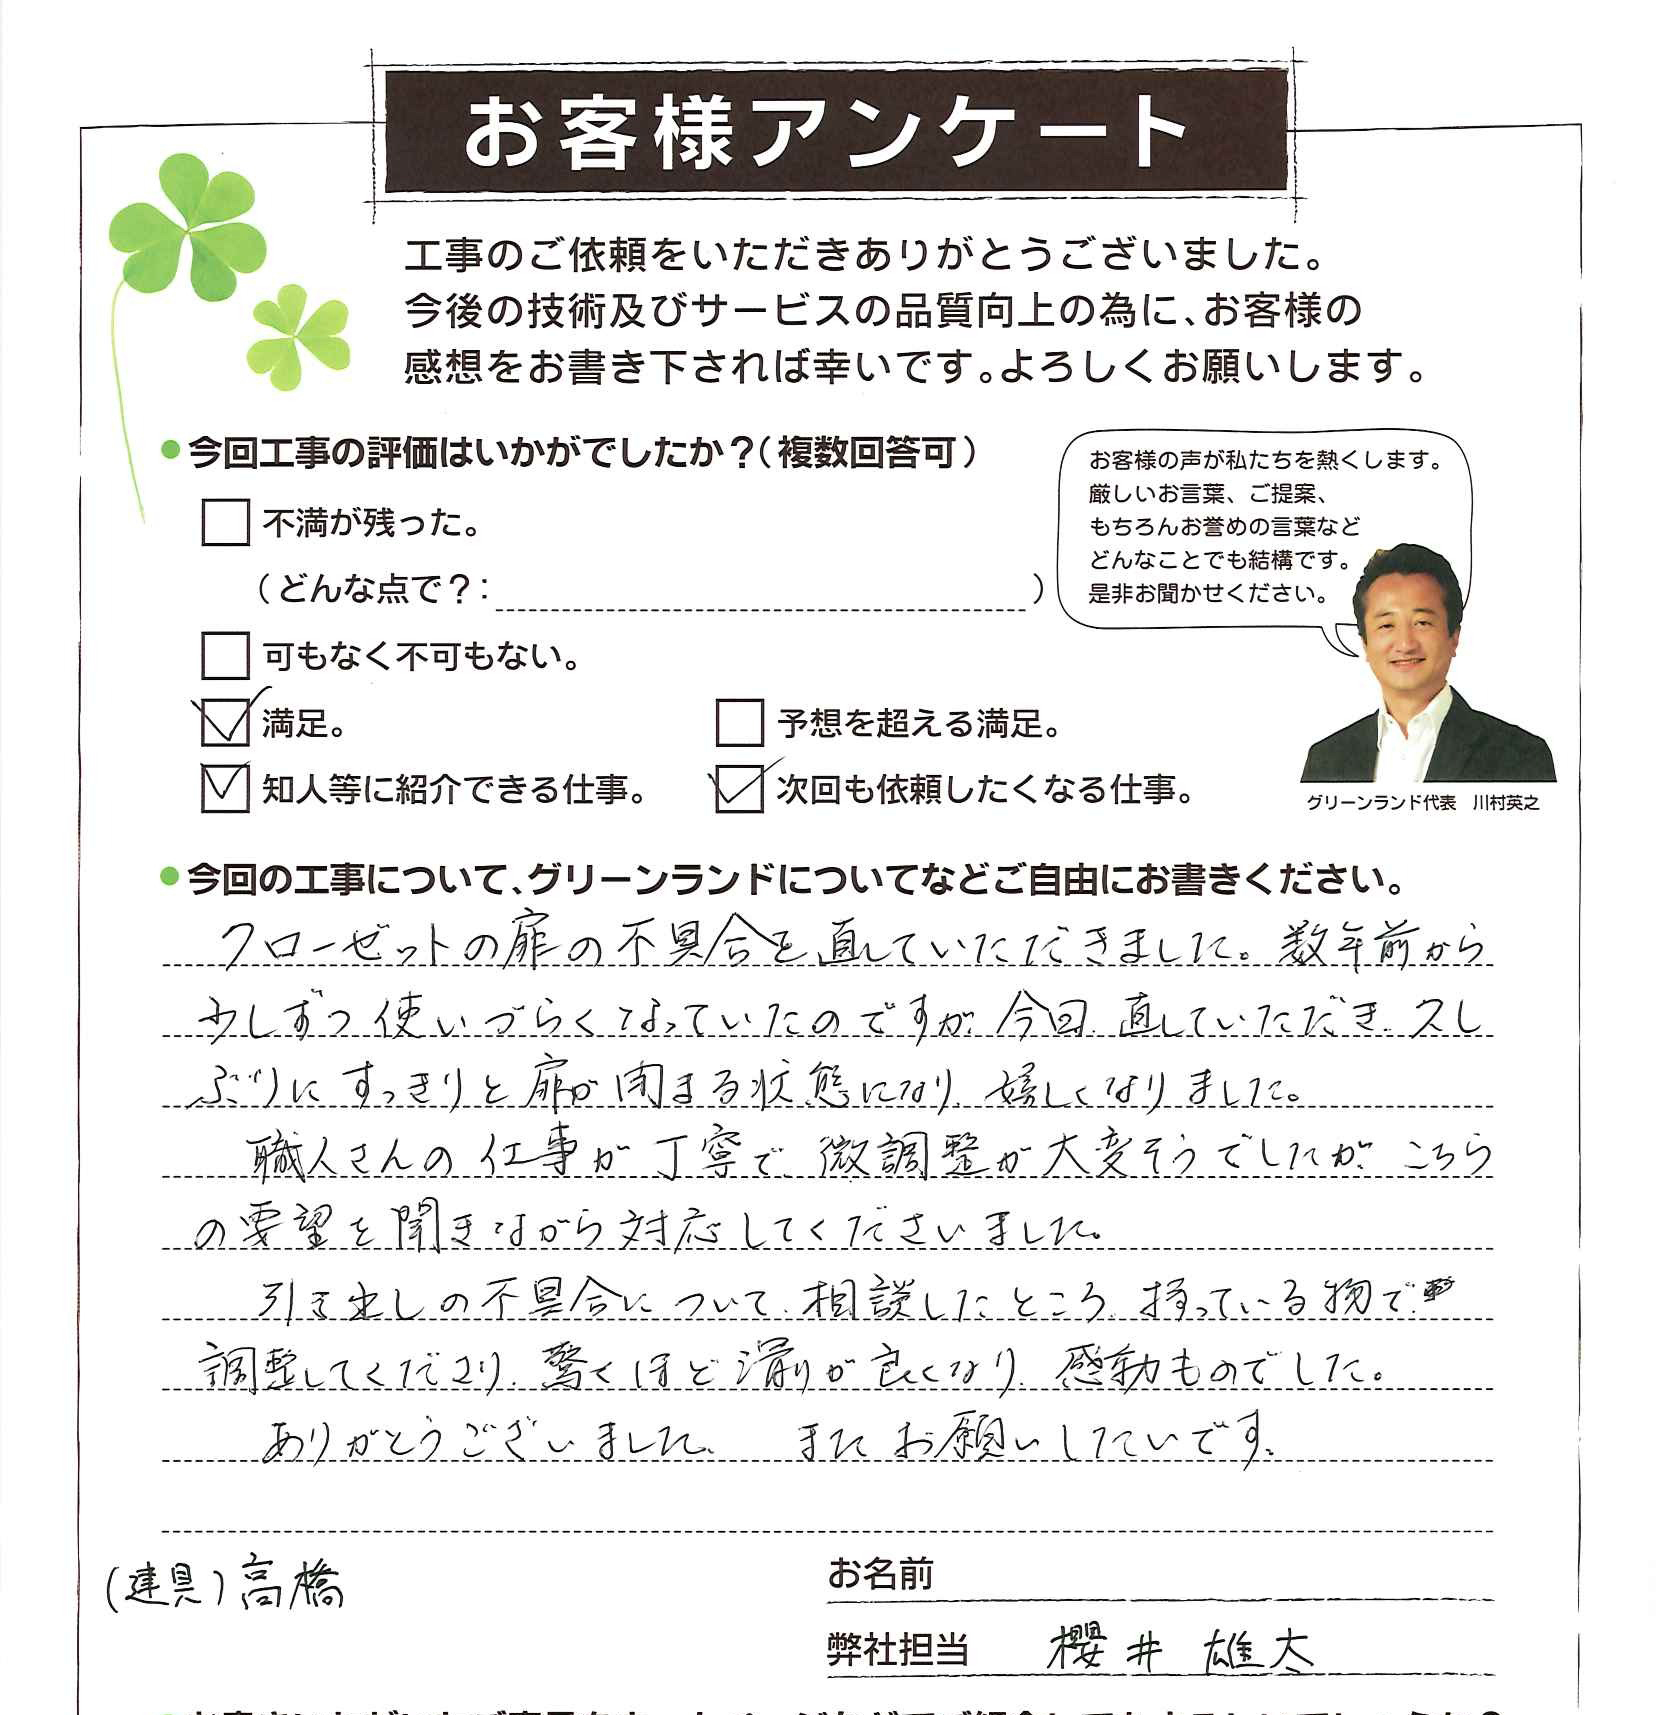 お客様アンケート
工事のご依頼をいただきありがとうございました。
今後の技術及びサービスの品質向上の為に、お客様の
感想をお書き下されれば幸いです。よろしくお願いします。
●今回工事の評価はいかがでしたか？(複数回答可)
不満が残った。
(どんな点で？: )
可もなく不可もない。
満足。
予想を超える満足。
知人等に紹介できる仕事。
次回も依頼したくなる仕事。
お客様の声が私たちを熱くします。
厳しいお言葉、ご提案、
もちろんお誉めの言葉など
どんなことでも結構です。
是非お聞かせください。
グリーンランド代表 川村英之
●今回の工事について、グリーンランドについてなどご自由にお書きください。
クローゼットの扉の不具合を直していただきました。数年前から
少しずつ使いづらくなっていたのですが、今回、直していただき、久し
ぶりにすっきりと扉が閉まる状態になり、嬉しくなりました。
職人さんの仕事が丁寧で、微調整が大変そうでしたが、こちら
の要望を聞きながら対応してくださいました。
引き出しの不具合について、相談したところ、持っている物で
調整してくださり、驚くほど滑りが良くなり、感動ものでした。
ありがとうございました。 またお願いしたいです。
(建具)高橋
お名前
弊社担当 櫻井 雄太